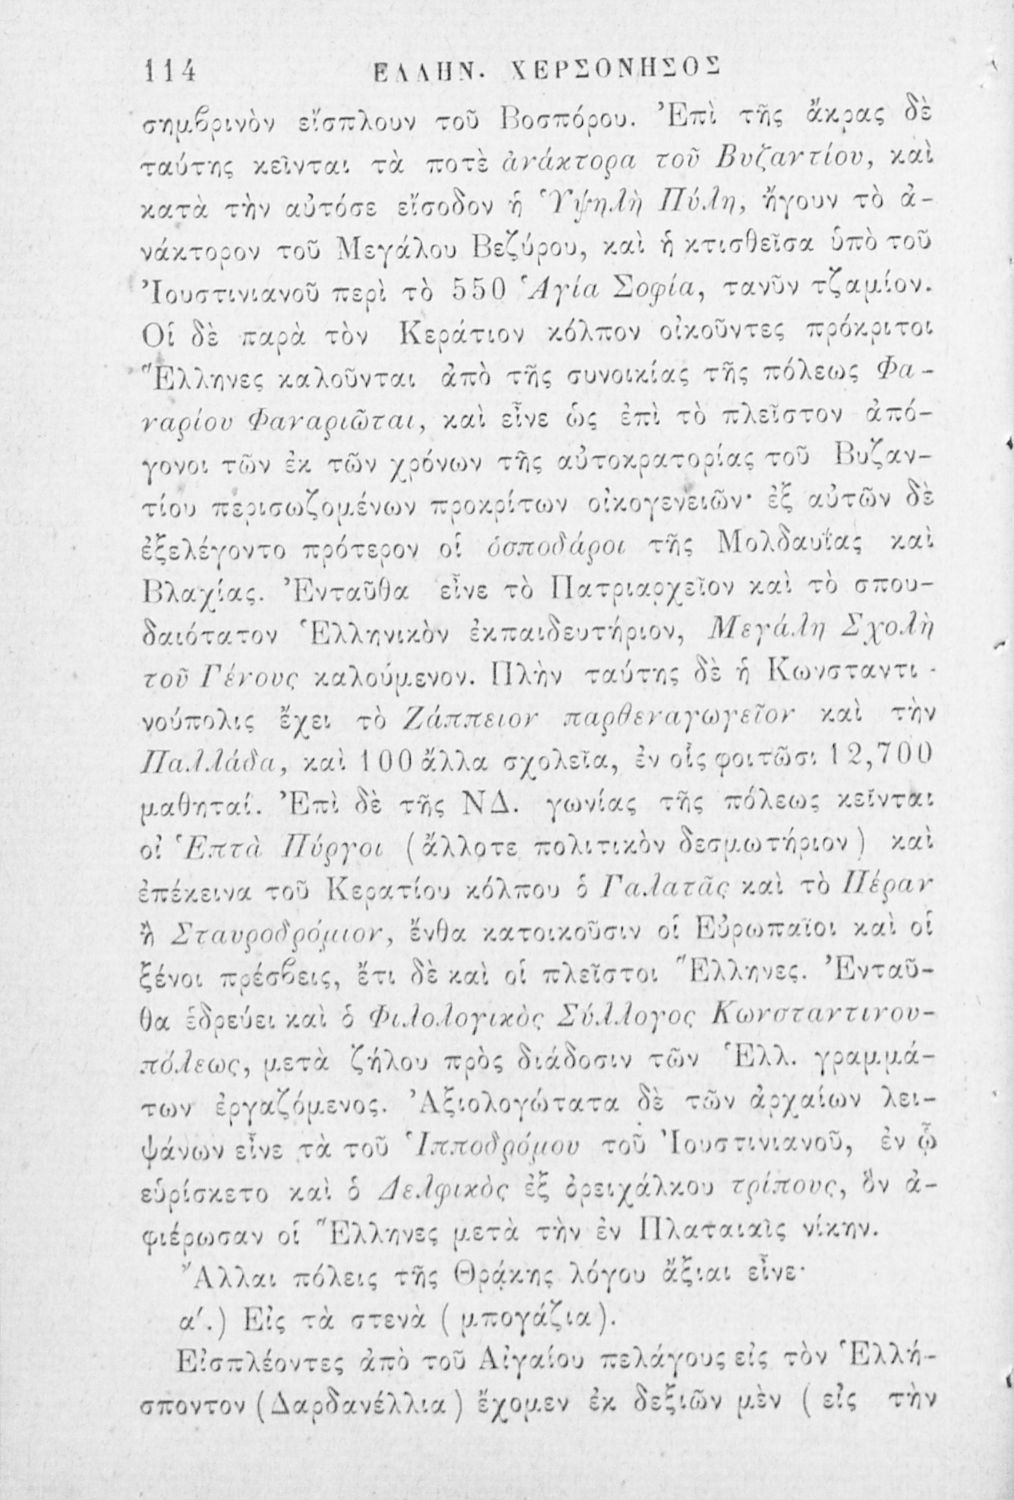 114 ΕΛΛΗΝ. ΧΕΡΣΟΝΗΣΟΣ
σημβρινὸν εἴσπλουν τοῦ Βοσπόρου. Ἐπὶ τῆς ἄκρας δὲ
ταύτης κεῖνται τὰ ποτὲ ἀνάκτορα τοῦ Βυζαντίου, καὶ
κατὰ τὴν αὐτόσε εἴσοδον ἡ Ὑψηλὴ Πύλη, ἤγουν τὸ ἀ-
νάκτορον τοῦ Μεγάλου Βεζύρου, καὶ ἡ κτισθεῖσα ὑπὸ τοῦ
Ἰουστινιανοῦ περὶ τὸ 550 Ἁγία Σοφία, τανῦν τζαμίον.
Οἱ δὲ παρὰ τὸν Κεράτιον κόλπον οἰκοῦντες πρόκριτοι
Ἕλληνες καλοῦνται ἀπὸ τῆς συνοικίας τῆς πόλεως Φα-
ναρίου Φαναριῶται, καὶ εἶνε ὡς ἐπὶ τὸ πλεῖστον ἀπό-
γονοι τῶν ἐκ τῶν χρόνων τῆς αὐτοκρατορίας τοῦ Βυζαν-
τίου περισωζομένων προκρίτων οἰκογενειῶν· ἐξ αὐτῶν δὲ
ἐξελέγοντο πρότερον οἱ ὁσποδάροι τῆς Μολδαυΐας καὶ
Βλαχίας. Ἐνταῦθα εἶνε τὸ Πατριαρχεῖον καὶ τὸ σπου-
δαιότατον Ἑλληνικὸν ἐκπαιδευτήριον, Μεγάλη Σχολὴ
τοῦ Γένους καλούμενον. Πλὴν ταύτης δὲ ἡ Κωνσταντι-
νούπολις ἔχει τὸ Ζάππειον παρθεναγωγεῖον καὶ τὴν
Παλλάδα, καὶ 100 ἄλλα σχολεῖα, ἐν οἷς φοιτῶσι 12,700
μαθηταί. Ἐπὶ δὲ τῆς ΝΔ. γωνίας τῆς πόλεως κεῖνται
οἱ Ἑπτὰ Πύργοι (ἄλλοτε πολιτικὸν δεσμωτήριον) καὶ
ἐπέκεινα τοῦ Κερατίου κόλπου ὁ Γαλατᾶς καὶ τὸ Πέραν
ἢ Σταυροδρόμιον, ἔνθα κατοικοῦσιν οἱ Εὐρωπαῖοι καὶ οἱ
ξένοι πρέσβεις, ἔτι δὲ καὶ οἱ πλεῖστοι Ἕλληνες. Ἐνταῦ-
θα ἑδρεύει καὶ ὁ Φιλολογικὸς Σύλλογος Κωνσταντινου-
πόλεως, μετὰ ζήλου πρὸς διάδοσιν τῶν Ἑλλ. γραμμά-
των ἐργαζόμενος. Ἀξιολογώτατα δὲ τῶν ἀρχαίων λει-
ψάνων εἶνε τὰ τοῦ Ἱπποδρόμου τοῦ Ἰουστινιανοῦ, ἐν ᾧ
εὑρίσκετο καὶ ὁ Δελφικὸς ἐξ ὀρειχάλκου τρίπους, ὃν ἀ-
φιέρωσαν οἱ Ἕλληνες μετὰ τὴν ἐν Πλαταιαῖς νίκην.
Ἄλλαι πόλεις τῆς Θρᾴκης λόγου ἄξιαι εἶνε·
α΄.) Εἰς τὰ στενὰ (μπογάζια).
Εἰσπλέοντες ἀπὸ τοῦ Αἰγαίου πελάγους εἰς τὸν Ἑλλή-
σποντον (Δαρδανέλλια) ἔχομεν ἐκ δεξιῶν μὲν (εἰς τὴν